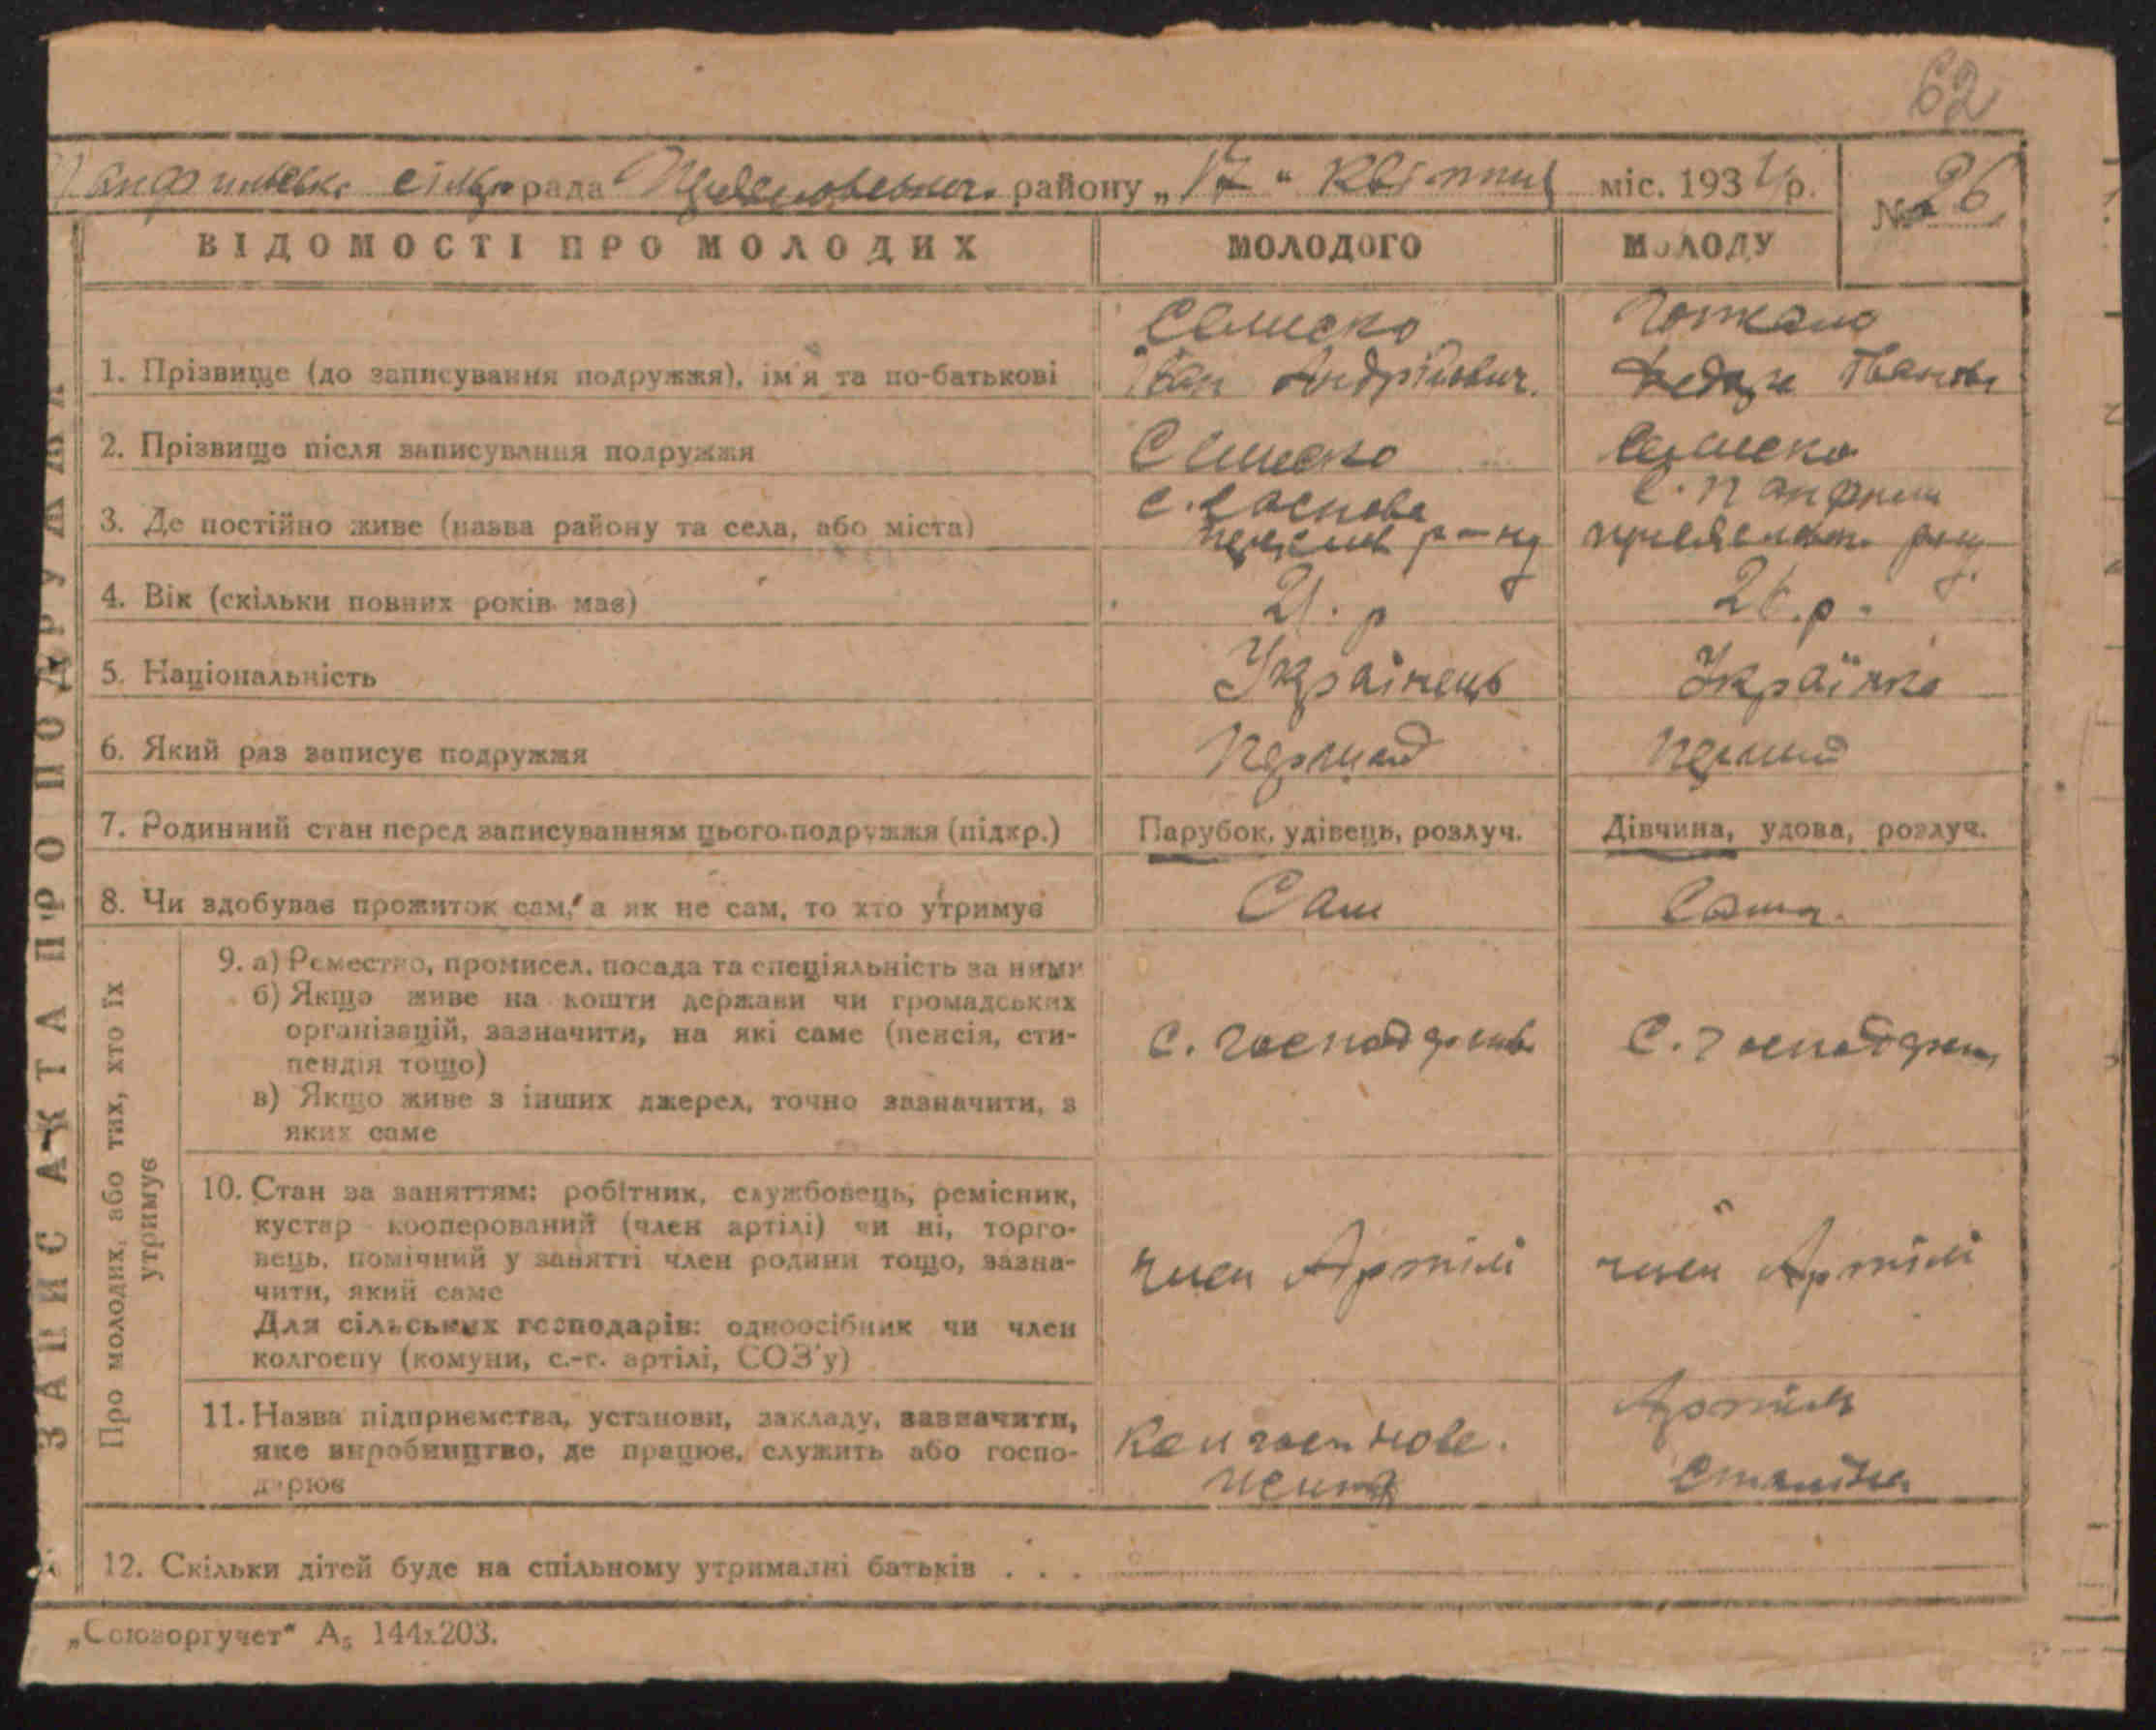 62
сільрада району „17“ Квітня міс. 193 р.
№ 26
ВІДОМОСТІ ПРО МОЛОДИХ МОЛОДОГО МОЛОДУ
1. Прізвище (до записування подружжя), ім'я та по-батькові Іван Андрійович.
2. Прізвище після записування подружжя
3. Де постійно живе (назва району та села, або міста) с. р-ну с.
4. Вік (скільки повних років має) 21. р р.
5. Національність Українець Українка
6. Який раз записує подружжя Перший Перший
7. Родинний стан перед записуванням цього подружжя (підкр.) Парубок, удівець, розлуч. Дівчина, удова, розлуч.
8. Чи здобуває прожиток сам, а як не сам, то хто утримує Сам Сама.
9. а) Ремество, промисел, посада та спеціяльність за ними
б) Якщо живе на кошти держави чи громадських
організацій, зазначити, на які саме (пенсія, сти-
пендія тощо)
в) Якщо живе з інших джерел, точно зазначити, з
яких саме
с. господар с. господар
10. Стан за заняттям: робітник, службовець, ремісник,
кустар кооперований (член артілі) чи ні, торго-
вець, помічний у занятті член родини тощо, зазна-
чити, який саме
Для сільських господарів: одноосібник чи член
колгоспу (комуни, с.-г. артілі, СОЗ'у)
член Артілі член Артілі
11. Назва підприємства, установи, закладу, зазначити,
яке виробництво, де працює, служить або госпо-
дарює
Артіль
12. Скільки дітей буде на спільному утриманні батьків . . .
ЗАПИС АКТА ПРО ПОДРУЖЖЯ
Про молодих, або тих, хто їх
утримує
„Союзоргучет“ А₅ 144х203.